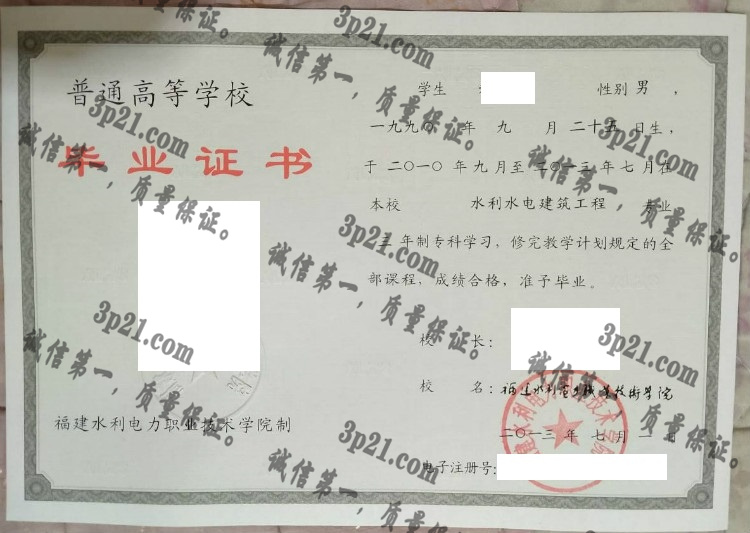 普通高等学校
毕业证书
福建水利电力职业技术学院制
学生 性别 男 ，
一九九〇 年 九 月 二十五 日生，
于 二〇一〇 年 九 月至 二〇一三 年 七 月在
本校 水利水电建筑工程 专业
三 年制专科学习，修完教学计划规定的全
部课程，成绩合格，准予毕业。
校 长：
校 名：福建水利电力职业技术学院
二〇一三 年 七 月 一日
电子注册号：
3p21.com
诚信第一，质量保证。
3p21.com
诚信第一，质量保证。
3p21.com
诚信第一，质量保证。
3p21.com
诚信第一，质量保证。
3p21.com
诚信第一，质量保证。
3p21.com
诚信第一，质量保证。
3p21.com
诚信第一，质量保证。